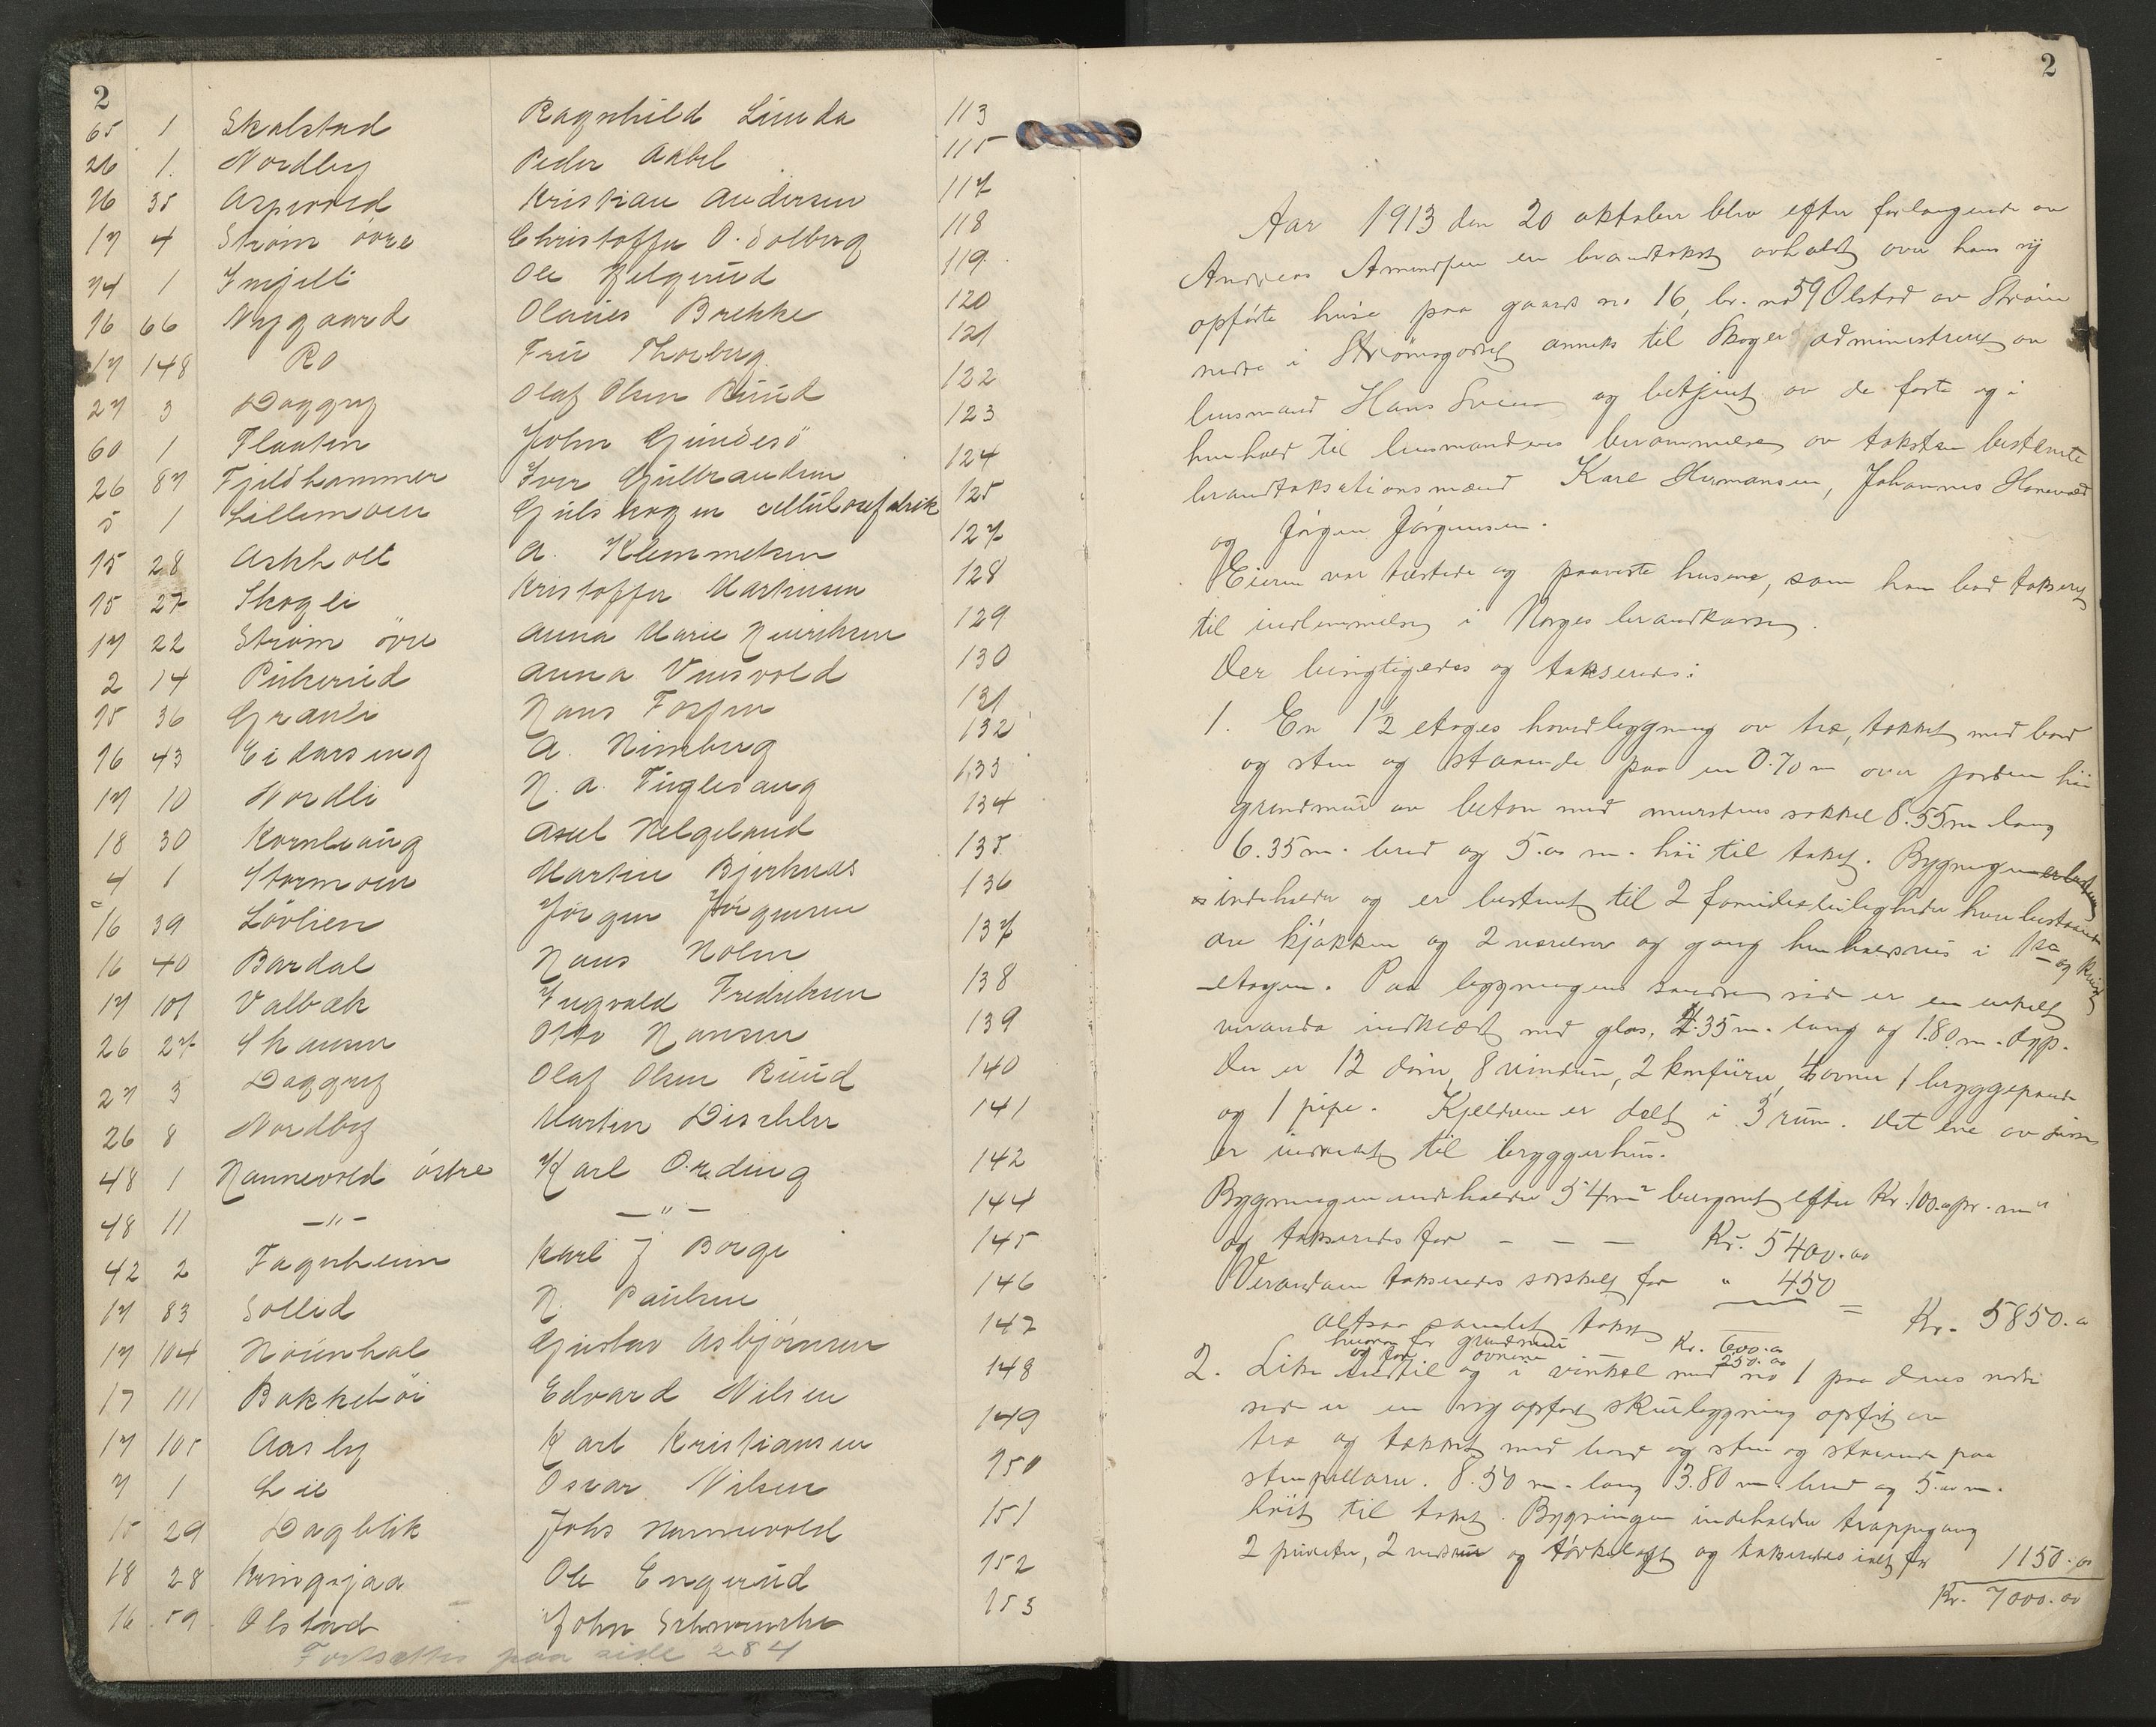 2
65 1 Skalstad Ragnhild Lunda 113
26 1. Nordby Peder Askel 115
26 35 Aspevold Kristian Andersen 117
17 4 Strøm övre Christoffer O. Solberg 118
74 1 Ole 119
16 66 Nygaard Olaves Brekke 120
17 148 Ro Thorberg 121
27 3 Daggry Olaf Olsen Ruud 122
60 1 Flaaten John Gundesö 123
26 87 Fjeldhammer Iver Gulbrandsen 124
5 1 Lillemoen Gulskogen cellulosefabrik 125
15 28 Askholt A. Klemmetsen 127
15 27 Skogli Kristoffer Markussen 128
17 22 Strøm övre Anna Marie Henriksen 129
2 14 Pukerud Anna 130
15 36 Granli Hans Fossen 131
16 43 Eidarseng A. Nimberg 132
17 10 Nordli H. A. Fuglesang 133
18 30 Kornhaug Axel Helgeland 134
4 1 Stormoen Martin Bjerknæs 135
16 39 Lövlien Jörgen Jörgensen 136
16 40 Bardal Hans Holm 137
17 101 Valbæk Ingvald Fredriksen 138
26 27 Skansen Otto Hansen 139
27 3 Daggry Olaf Olsen Ruud 140
26 8 Nordby Martin Dischler 141
48 1 Hannevold östre Karl Ording 142
48 11 —"— —"— 144
42 2 Fagerheim Karl J Borge 145
17 83 Sollid H. Paulsen 146
17 104 Gustav Asbjörnsen 147
17 111 Bakkehöi Edvard Nilsen 148
17 105 Aasby Karl Kristiansen 149
7 1 Lie Osvar Nilsen 150
15 29 Dagblik Johs Hannevold 151
18 28 Kringsjaa Ole Engerud 152
16 59 Olstad John Schwencke 153
Fortsættes paa side 284
2
Aar 1913 den 20 oktober blev efter forlangende av
Andreas Amundsen en brandtakst avholdt over hans ny
opførte huse paa gaards no 16, br. no 59 Olstad av Strøm
nedre i Strømsgodset anneks til Skoger administreret av
lensmand Hans Sveen og betjent av de faste og i
henhold til lensmandens berammelse av taksten bestemte
brandtaksationsmænd Karl Hermansen, Johannes Hanevold
og Jörgen Jörgensen.
Eieren var tilstede og paaviste husene, som han bad takseret
til indlemmelse i Norges brandkasse.
Der besigtigedes og takseredes:
1. En 1½ etages hovedbygning av træ, tækket med bord
og sten og staaende paa en 0.70 m over jorden höi
grundmur av beton med murstens sokkel 8.55 m lang
6.35 m. bred og 5.00 m. höi til taket. Bygningen
indeholder og er bestemt til 2 familieleiligheder hver bestaaende
av kjøkken og 2 værelser og gang henholdsvis i 1ste og kvist
-etagen. Paa bygningens søndre side er en enkelt
veranda indklædt med glas, 2.35 m. lang og 1.80 m. dyp.
Der er 12 döre, 8 vinduer, 2 komfurer, 4 ovner 1 bryggepande
og 1 pipe. Kjelderen er delt i 3 rum. Det ene av disse
er indredet til bryggerhus.
Bygningen indeholder 54 m² beregnet efter Kr. 100.00 pr. m²
og takseredes for — — — Kr. 5400.00
Verandaen takseredes særskilt for " 450
altsaa samlet takst = Kr. 5850.00
hvorav for grundmur Kr. 600.00
og for ovnene 250.00
2. Like indtil og i vinkel med no 1 paa dens nordre
side er en ny opført skurbygning opført av
træ og tækket med bord og sten og staaende paa
stenpillarer. 8.50 m. lang 3.80 m. bred og 5.00 m.
höit til taket. Bygningen indeholder trappegang
2 priveter, 2 vedrum og tørkeloft og takseredes ialt for 1150.00
Kr. 7000.00